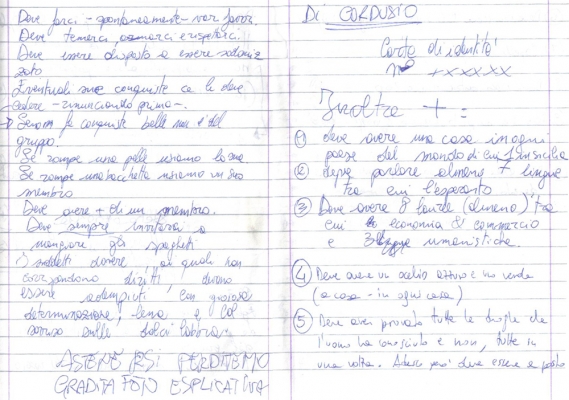 Deve farci - spontaneamente - vari favori.
Deve temerci, amarci e rispettarci.
Deve essere disposto a essere sodomiz
zato
Eventuali sue conquiste ce le deve
cedere - rinunciando prima -.
Se rompe una pelle usiamo la sua
Se rompe una bacchetta usiamo un suo
membro
Deve avere + di un membro.
Deve sempre invitarci a
mangiare gli spaghetti
I suddetti doveri, ai quali non
corrispondono diritti, devono
essere adempiuti con gioiosa
determinazione, lena e col
sorriso sulle dolci labbra.
ASTENERSI PERDITEMPO
GRADITA FOTO ESPLICATIVA
Di CORDUSIO
Carta di identità
n° +xxxxxx
Inoltre + =
① deve avere una casa in ogni
paese del mondo di cui 1 in Sicilia
② deve parlare almeno 7 lingue
tra cui l'esperanto
③ Deve avere 8 lauree (almeno) tra
cui economia & commercio
e 3 umanistiche.
④ Deve avere un occhio azzurro e uno verde
(a casa - in ogni casa)
⑤ Deve aver provato tutte le droghe che
l'uomo ha conosciuto e non, tutte in
una volta. Adesso però deve essere a posto